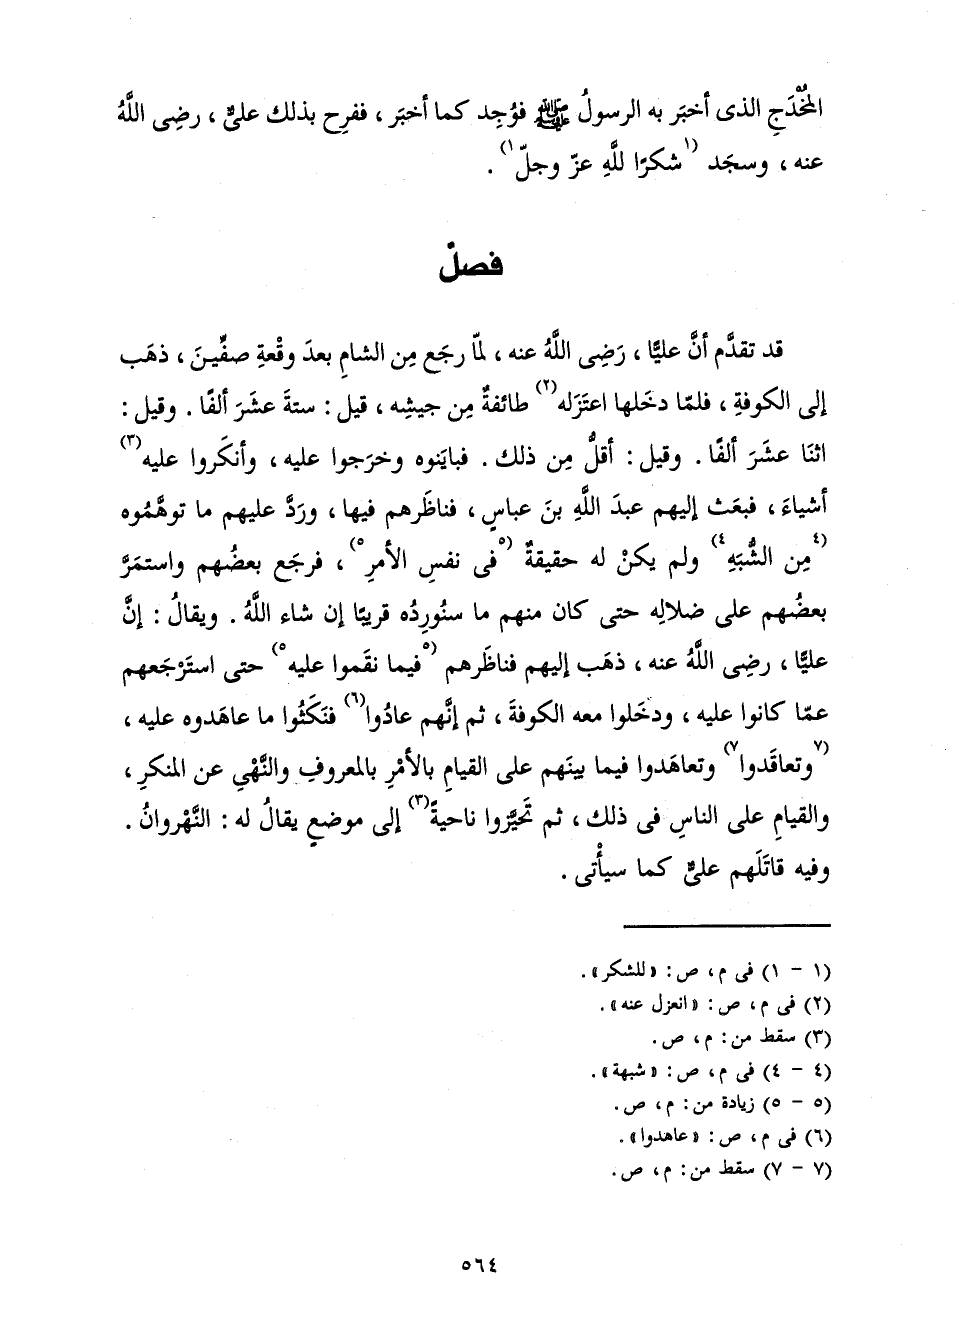 المُخْدَجِ الذى أخبَر به الرسولُ ﷺ فوُجِد كما أخبَر ، ففرِح بذلك علىٌّ ، رضِى اللَّهُ
عنه ، وسجَد (١شكرًا للَّهِ عزّ وجلّ١) .
فصلٌ
قد تقدَّم أنَّ عليًّا ، رَضِى اللَّهُ عنه ، لمّا رجَع مِن الشامِ بعدَ وقْعةِ صفِّينَ ، ذهَب
إلى الكوفةِ ، فلمّا دخَلها اعتَزَله(٢) طائفةٌ مِن جيشِه ، قيل : ستةَ عشَرَ ألفًا . وقيل :
اثنَا عشَرَ ألفًا . وقيل : أقلُّ مِن ذلك . فبايَنوه وخرَجوا عليه ، وأنكَروا عليه(٣)
أشياءَ ، فبعَث إليهم عبدَ اللَّهِ بنَ عباسٍ ، فناظَرهم فيها ، ورَدَّ عليهم ما توهَّمُوه
(٤مِن الشُّبَهِ٤) ولم يكنْ له حقيقةٌ (٥فى نفسِ الأمرِ٥) ، فرجَع بعضُهم واستمَرَّ
بعضُهم على ضلالِه حتى كان منهم ما سنُورِدُه قريبًا إن شاء اللَّهُ . ويقالُ : إنَّ
عليًّا ، رضِى اللَّهُ عنه ، ذهَب إليهم فناظَرهم (٥فيما نقَموا عليه٥) حتى استَرْجَعهم
عمّا كانوا عليه ، ودخَلوا معه الكوفةَ ، ثم إنَّهم عادُوا(٦) فنَكَثُوا ما عاهَدوه عليه ،
(٧وتعاقَدوا٧) وتعاهَدوا فيما بينَهم على القيامِ بالأمْرِ بالمعروفِ والنَّهْىِ عن المنكرِ ،
والقيامِ على الناسِ فى ذلك ، ثم تَحيَّزوا ناحيةً(٣) إلى موضعٍ يقالُ له : النَّهْروانُ .
وفيه قاتَلَهم علىٌّ كما سيأْتى .
(١ - ١) فى م ، ص : « للشكر » .
(٢) فى م ، ص : « انعزل عنه » .
(٣) سقط من : م ، ص .
(٤ - ٤) فى م ، ص : « شبهة » .
(٥ - ٥) زيادة من : م ، ص .
(٦) فى م ، ص : « عاهدوا » .
(٧ - ٧) سقط من : م ، ص .
٥٦٤